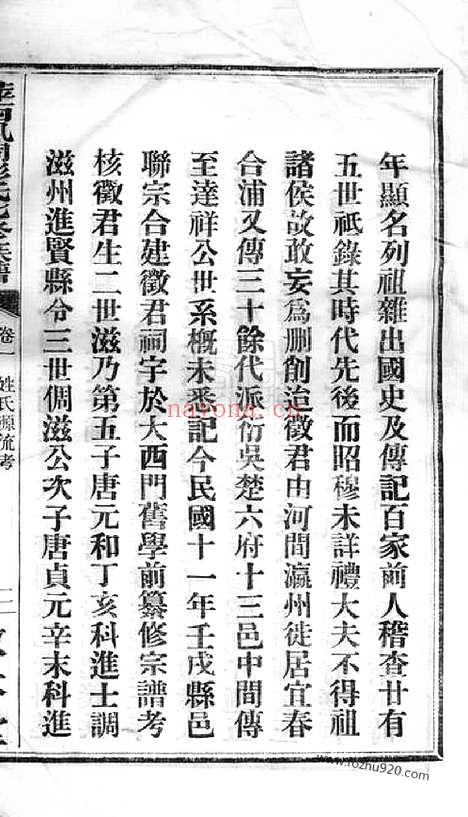 年顯名列祖雜出國史及傳記百家前人稽查廿有
五世祇錄其時代先後而昭穆未詳禮大夫不得祖
諸侯故敢妄爲刪削迨徵君由河間瀛州徙居宜春
合浦又傳三十餘代派衍吳楚六府十三邑中間傳
至達祥公世系概未悉記今民國十一年壬戌縣邑
聯宗合建徵君祠宇於大西門舊學前纂修宗譜考
核徵君生二世滋乃第五子唐元和丁亥科進士調
滋州進賢縣令三世倜滋公次子唐貞元辛未科進
氏 族譜
卷一
姓氏源流考
nayona.cn
www.rozhu920.com